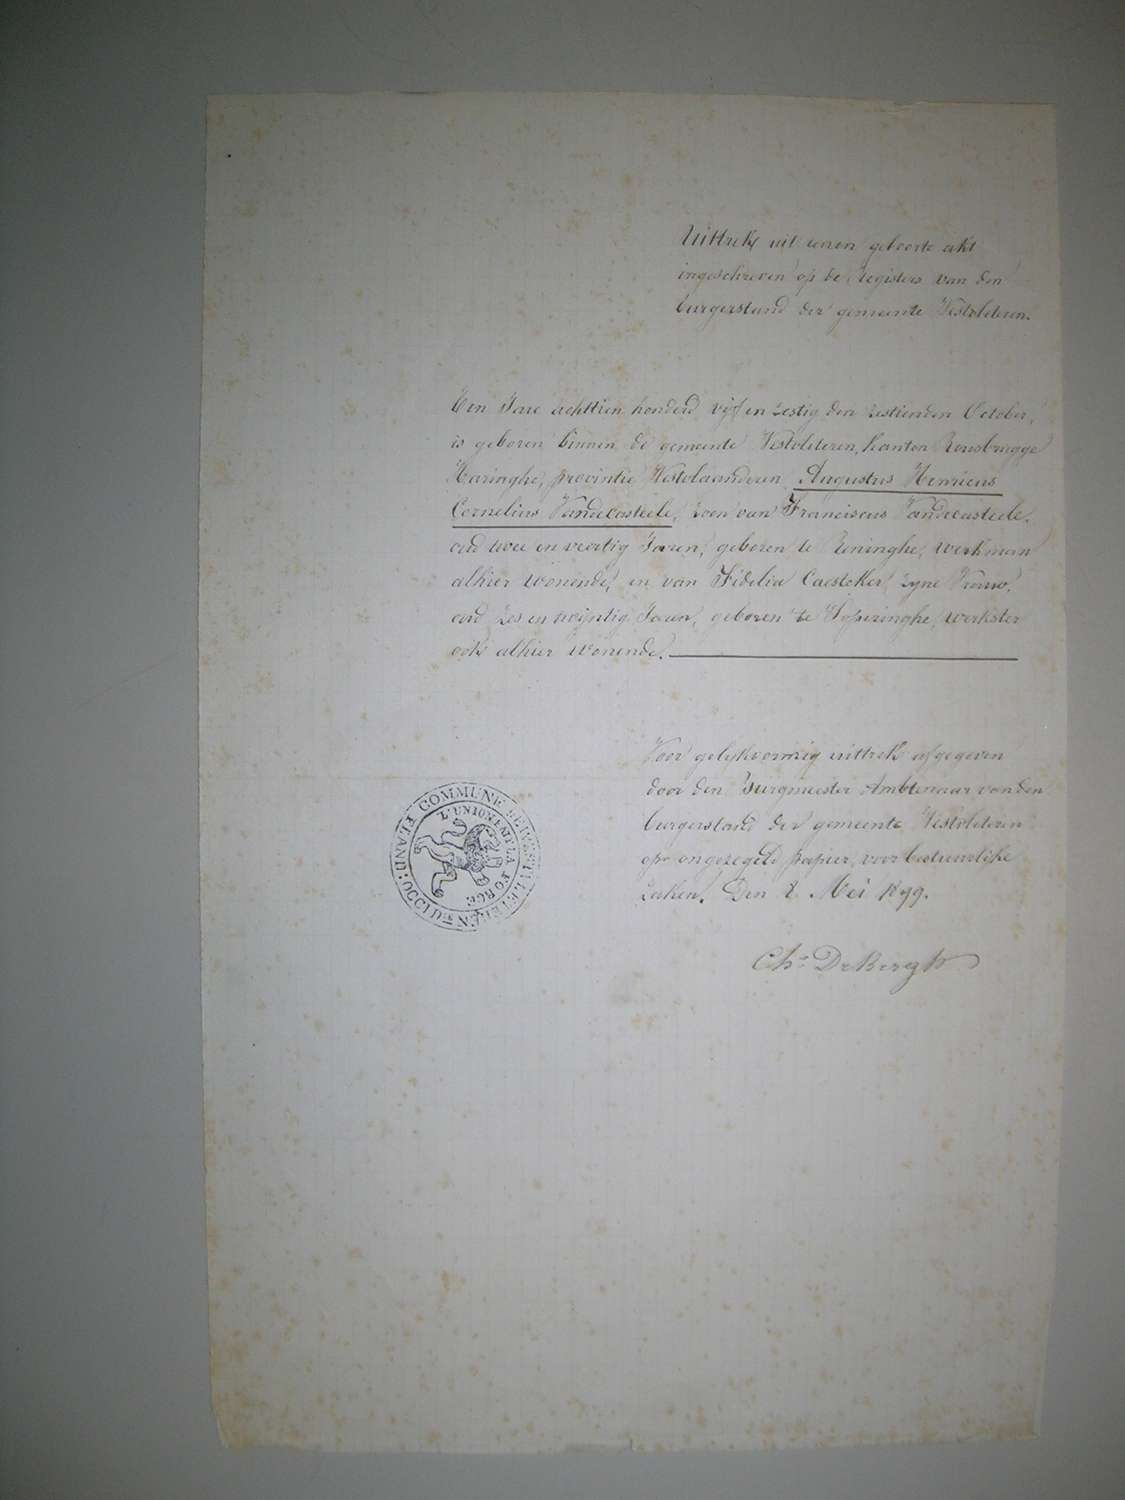 Uittrek uit eenen geboorte akt
ingeschreven op de Registers van den
burgerstand der gemeente Westvleteren.
Een Jare achttien honderd vyf en zestig den zestienden October,
is geboren binnen de gemeente Westvleteren, kanton Rousbrugge
Haringhe, provintie Westvlaanderen, Augustus Henricus
Cornelius Vandecasteele, zoon van Franciscus Vandecasteele,
oud twee en veertig Jaren, geboren te Reninghe, werkman
alhier wonende, en van Fidelia Caesteker, zyne Vrouw,
oud zes en Jaren, geboren te Poperinghe, werkster
ook alhier wonende.
Voor gelykvormig uittrek afgegeven
door den Burgmeester Ambtenaar van den
burgerstand der gemeente Westvleteren
op ongezegeld papier, voor bestuurlijke
zaken. Den 8 Mei 1899.
Chs DeBergh
COMMUNE DE WESTVLETEREN FLAND: OCCIDle
L'UNION FAIT LA FORCE